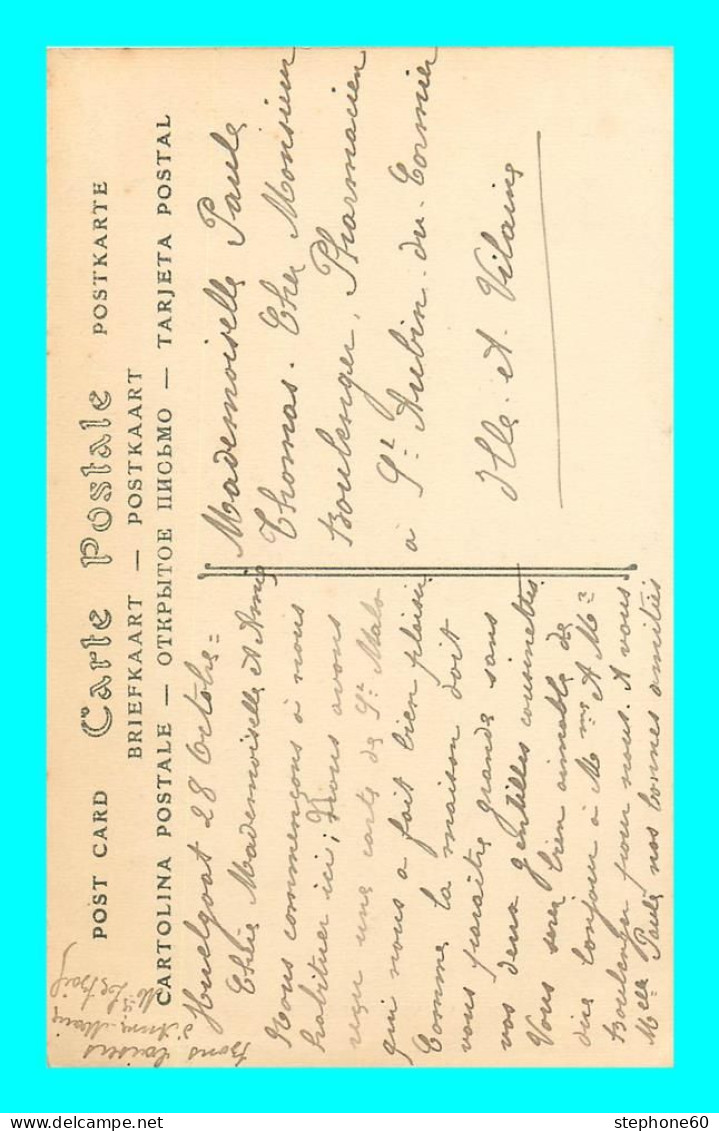 POST CARD Carte Postale POSTKARTE
BRIEFKAART — POSTKAART
CARTOLINA POSTALE — ОТКРЫТОЕ ПИСЬМО — TARJETA POSTAL
Huelgoat 28 Octobre =
Chère Mademoiselle et Amie
Nous commençons à nous
habituer ici ; Nous avons
reçu une carte de St Malo
qui nous a fait bien plaisir
Comme la maison doit
vous paraître grande sans
vos deux gentilles cousinettes
Vous serez bien aimable de
dire bonjour à Mme & Mr
Boulenger pour nous. A vous
Melle Paule nos bonnes amitiés
Bons baisers
d'Anne-Marie
Mademoiselle Paule
Thomas. Chez Monsieur
Boulenger, Pharmacien
à St Aubin-du-Cormier
Ille-et-Vilaine
stephone60